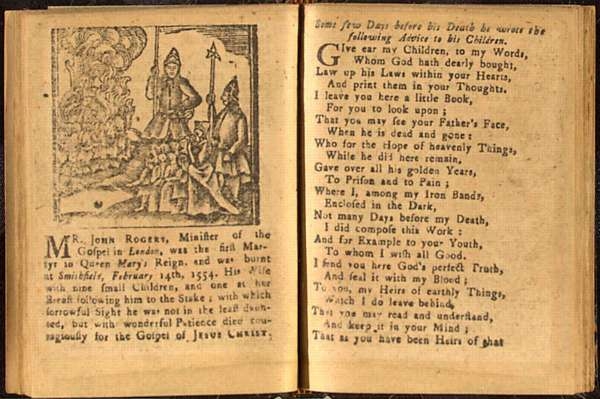 MR. JOHN ROGERS, Minister of the
Gospel in London, was the first Mar-
tyr in Queen Mary's Reign, and was burnt
at Smithfield, February 14th, 1554. His Wife
with nine small Children, and one at her
Breast following him to the Stake; with which
sorrowful Sight he was not in the least daun-
ted, but with wonderful Patience died cou-
ragiously for the Gospel of JESUS CHRIST.
Some few Days before his Death he wrote the
following Advice to his Children.
GIve ear my Children, to my Words,
Whom God hath dearly bought,
Law up his Laws within your Hearts,
And print them in your Thoughts.
I leave you here a little Book,
For you to look upon;
That you may see your Father's Face,
When he is dead and gone:
Who for the Hope of heavenly Things,
While he did here remain,
Gave over all his golden Years,
To Prison and to Pain;
Where I, among my Iron Bands,
Enclosed in the Dark,
Not many Days before my Death,
I did compose this Work:
And for Example to your Youth,
To whom I with all Good.
I send you here God's perfect Truth,
And seal it with my Blood;
To you, my Heirs of earthly Things,
Which I do leave behind,
That you may read and understand,
And keep it in your Mind;
That as you have been Heirs of that